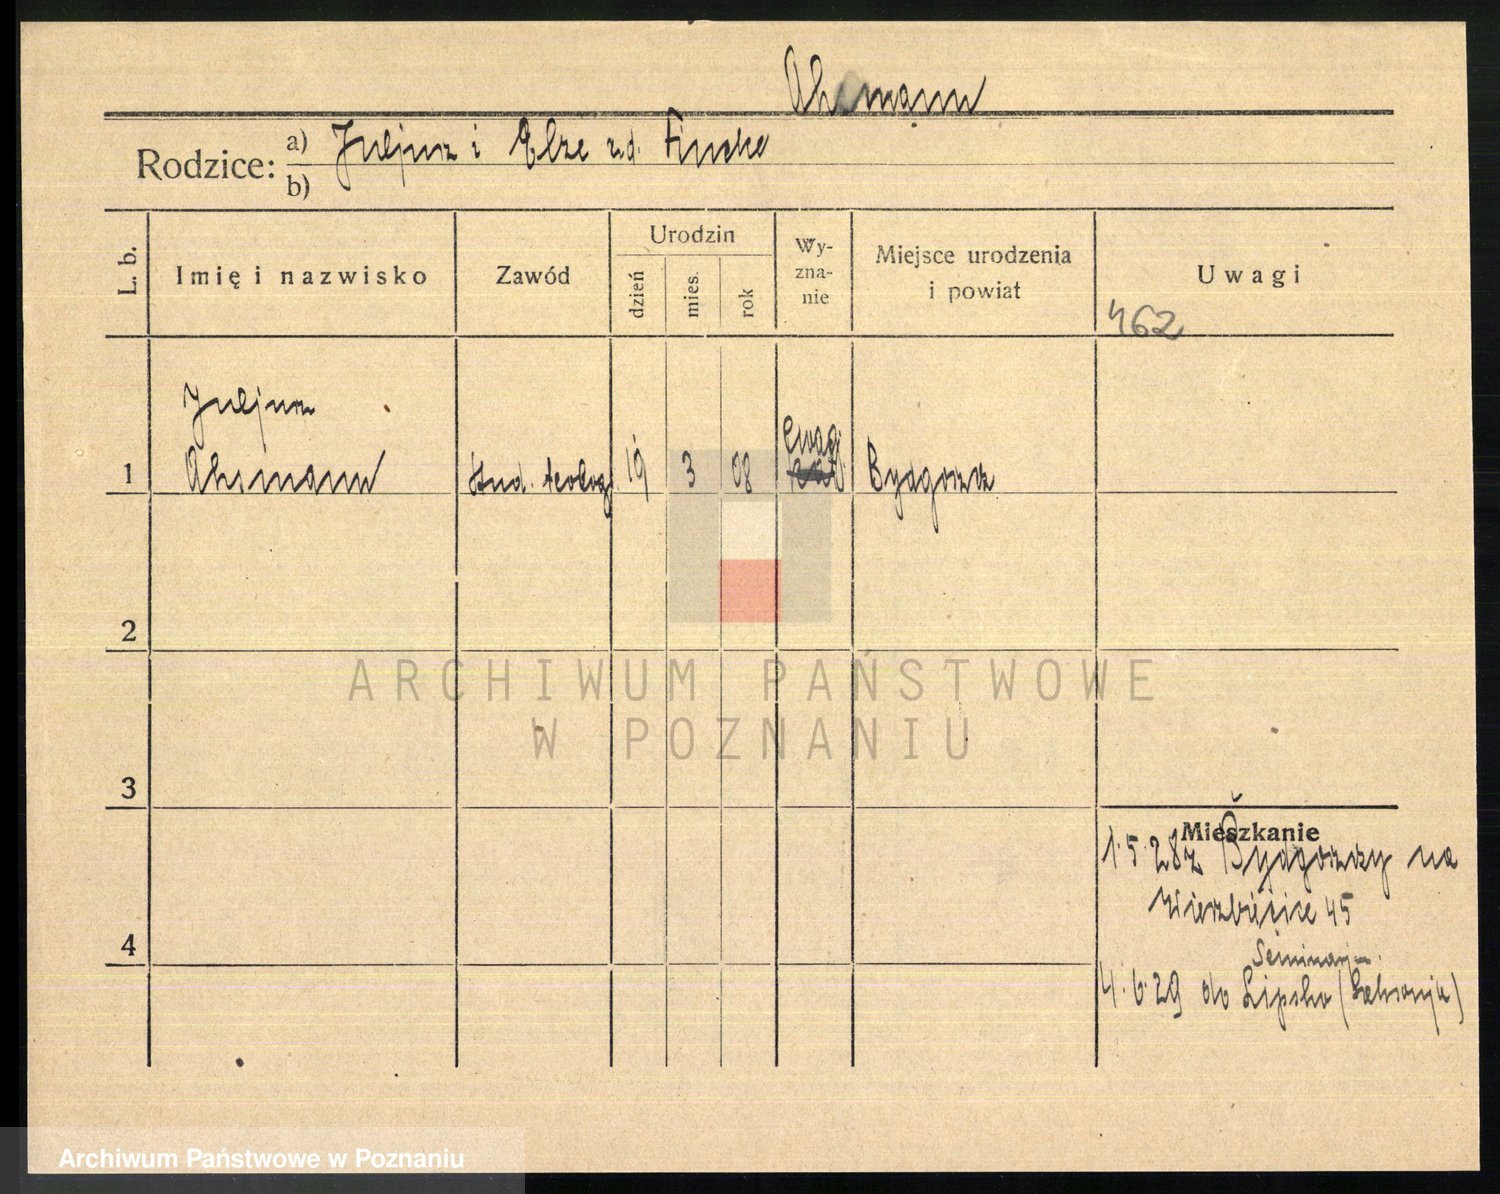 Ahsmann
Rodzice: a) Juljusz i Elze ud. Fincke
b)
L. b.
Imię i nazwisko
Zawód
Urodzin
dzień
mies.
rok
Wy-
zna-
nie
Miejsce urodzenia
i powiat
Uwagi
462
Juljusz
1 Ahsmann stud. teolog. 19 3 08 ewagi Bydgoszcz
2
3
4
Mieszkanie
1.5.28 z Bydgoszczy na
Wierzbięcice 45
Seminarjum.
4.6.29 do Lipska (Saksonja)
ARCHIWUM PAŃSTWOWE
W POZNANIU
Archiwum Państwowe w Poznaniu